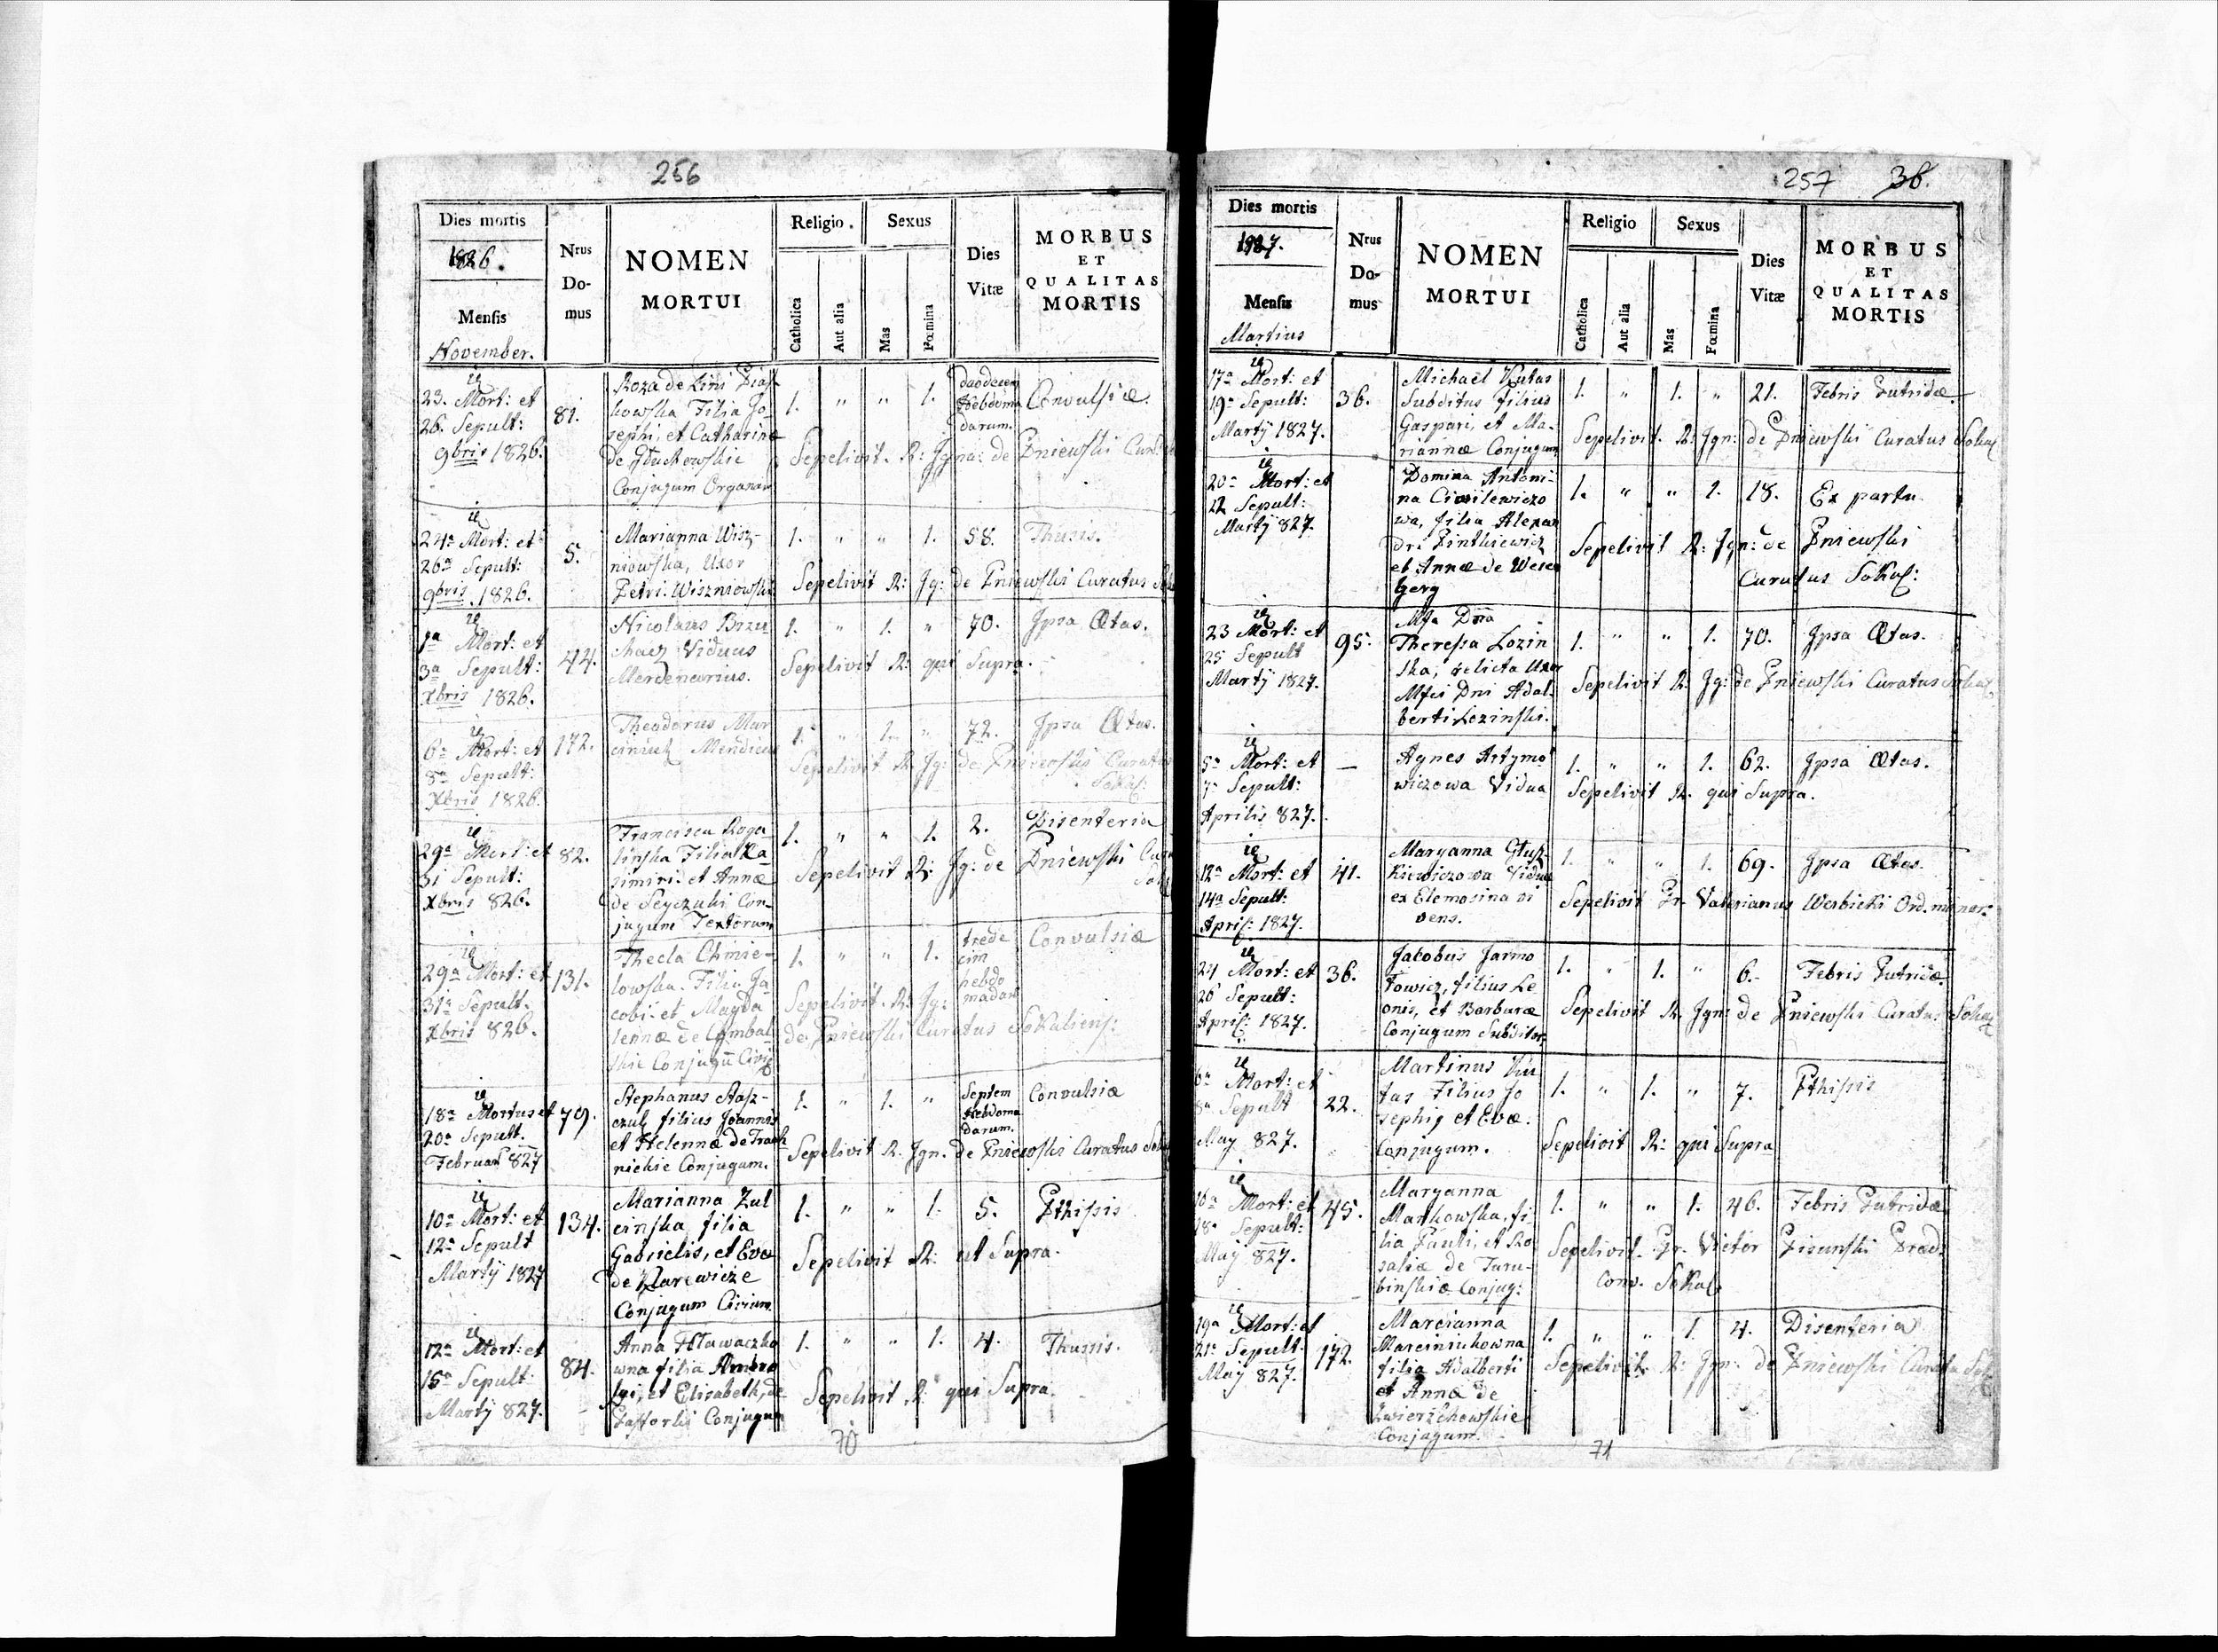 256
Dies mortis
1826.
Mensis
November.
Nrus
Do-
mus
NOMEN
MORTUI
Religio.
Catholica
Aut alia
Sexus
Mas
Fœmina
Dies
Vitæ
MORBUS
ET
QUALITAS
MORTIS
23. Mort: et
26. Sepult:
9bris 1826.
81.
Roza de Lini
kowska Filia Jo-
sephi, et Catharinæ
de Głuchowskie
Conjugum Organar
1. " " 1.
duodecem
Hebdoma
darum.
Convulsiæ.
Sepelivit. R: Igna: de Pniewski
24a Mort: et
26a Sepult:
9bris. 1826.
5.
Marianna Wisz-
niowska, Uxor
Petri Wiszniowski
1. " " 1. 58. Thusis.
Sepelivit R: Ig: de Pniewski Curatus
1a Mort: et
3a Sepult:
Xbris 1826.
44.
Nicolaus Brzu
chacz Viduus
Merdenarius.
1. " 1. " 70. Ipsa Ætas.
Sepelivit R: qui Supra.
6a Mort: et
8a Sepult:
Xbris 1826.
172.
Theodorus Mar
ciniuk Mendicus
1. " 1. " 72. Ipsa Ætas.
Sepelivit R: Ig: de Pniewski Curatus
Sokal:
29a Mort: et
31 Sepult:
Xbris 826.
82.
Francisca Roga
linska Filia Ka
simiri et Annæ
de Seyczuki Con-
jugum Textorum
1. " " 1. 2. Disenteria
Sepelivit R: Ig: de Pniewski
29a Mort: et
31a Sepult.
Xbris 826.
131.
Thecla Chmie-
lowska. Filia Ja
cobi et Magda
lennæ de Combal
skie Conjugū
1. " " 1.
trede
cim
hebdo
madar
Convulsiæ
Sepelivit. R: Ig:
de Pniewski Curatus Sokaliens:
18a Mortus et
20a Sepult.
Februar 827
79.
Stephanus Stasz-
czuk filius Joannis
et Helennæ de
nickie Conjugum.
1. " 1. "
Septem
Hebdoma
darum.
Convulsiæ
Sepelivit R: Ign. de Pniewski Curatus
10a Mort: et
12a Sepult
Martÿ 1827
134.
Marianna Zul
cinska filia
Gabrielis, et Evæ
de Karewicze
Conjugum Civium
1. " " 1. 5. Pthisis
Sepelivit R: ut Supra.
12a Mort: et
15a Sepult:
Martÿ 827.
84.
Anna Hławaczko
wna filia Ambro
sii, et Elisabeth, de
Conjugum
1. " " 1. 4. Thussis.
Sepelivit R: qui Supra.
70
257 36.
Dies mortis
1827.
Mensis
Martius
Nrus
Do-
mus
NOMEN
MORTUI
Religio
Catholica
Aut alia
Sexus
Mas
Fœmina
Dies
Vitæ
MORBUS
ET
QUALITAS
MORTIS
17a Mort: et
19a Sepult:
Martÿ 1827.
36.
Michael Kutas
Subditus filius
Gaspari, et Ma-
riannæ Conjugum
1. " 1. " 21. Febris Putridæ
Sepelivit. R: Ign: de Pniewski Curatus Sokal
20a Mort: et
22 Sepult:
Martÿ 827.
Domina Antoni-
na Ciwilewiczo
wa, filia Alexan
dri Pintkiewicz
et Annæ de Wesen
berg
1. " " 1. 18. Ex partu
Sepelivit R: Ign: de Pniewski
Curatus Sokal:
23 Mort: et
25 Sepult
Martÿ 1827.
95.
Mfa Dna
Theressa Lozin
ska, relicta Uxor
Mfci Dni Adal-
berti Lozinski.
1. " " 1. 70. Ipsa Ætas.
Sepelivit R: Ig: de Pniewski Curatus Sokal
5a Mort: et
7a Sepult:
Aprilis 827.
—
Agnes Artymo
wiczowa Vidua
1. " " 1. 62. Ipsa Ætas.
Sepelivit R. qui Supra.
12a Mort: et
14a Sepult:
April: 1827.
41.
Maryanna Głusz-
kiewiczowa Vidua
ex Elemosina vi
vens.
1. " " 1. 69. Ipsa Ætas.
Sepelivit Pr. Valerianus Werbicki Ord. minor:
24 Mort: et
26 Sepult:
April: 1827.
36.
Jacobus Jarmo
łowicz, filius Le
onis, et Barbaræ
Conjugum Subditor:
1. " 1. " 6. Febris Putridæ
Sepelivit R Ign: de Pniewski Curatus Sokal
6a Mort: et
8a Sepult
May 827.
22.
Martinus Ku
tas Filius Jo
sephi et Evæ.
Conjugum.
1. " 1. " 7. Pthisis
Sepelivit R: qui Supra
16a Mort: et
18a Sepult:
Maÿ 827.
45.
Maryanna
Markowska, fi-
lia Pauli, et Ro
saliæ de Turu-
binskiæ Conjug:
1. " " 1. 46. Febris Putridæ
Sepelivit. Pr. Victor Pisunski Præd:
Conv. Sokal
19a Mort: et
21a Sepult.
Maÿ 827.
172.
Marcianna
Marciniukowna
filia Adalberti
et Annæ de
Zwierzchowskie
Conjugum.
1. " " 1. 4. Disenteria
Sepelivit. R: Ign: de Pniewski
71